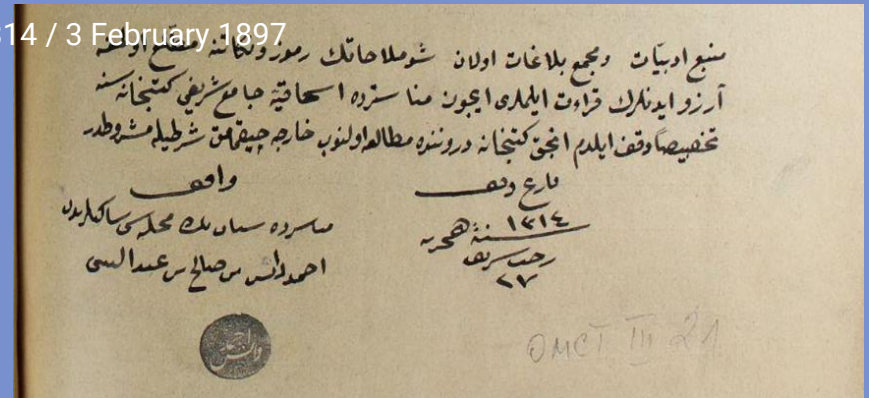 14 / 3 February 1897
منبع ادبیات و مجمع بلاغات اولان شو ملاحاتك رموز و نكاتنه مطلع اولمغه
آرزو ایدنلرك قراءت ایلملری ایچون مناستردە اسحاقیه جامع شریفی كتبخانه سنه
تخصیصاً وقف ایلدم انجق كتبخانه دروننده مطالعه اولنوب خارجه چیقمامق شرطیله مشروطدر
تاریخ وقف
واقف
سنة ١٣١٤ هجریه
رجب شریف
٢٧
مناسترده سنان بك محله سی ساكنلرندن
احمد دانش بن صالح بن عبدالنبی
OMCT III 21